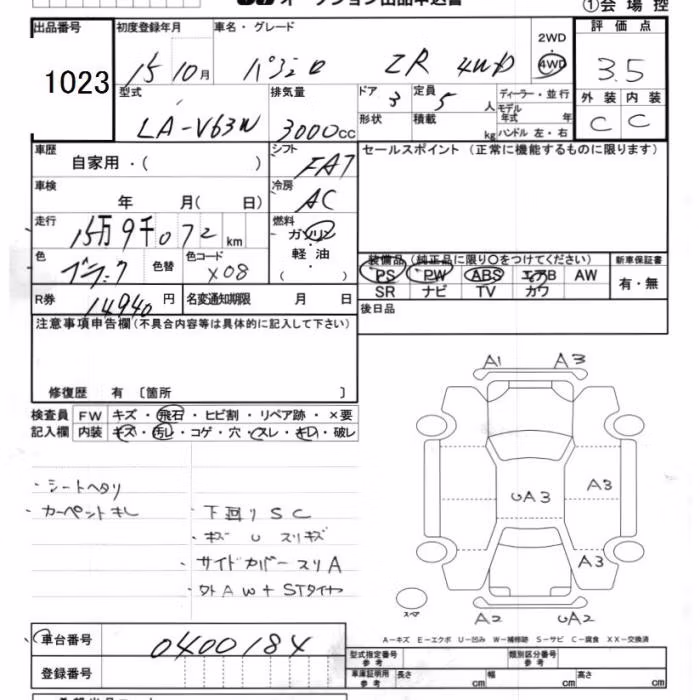 オークション出品申込書
①会場控
出品番号 1023
初度登録年月 15 10月
車名・グレード パジェロ ZR 4WD
2WD
4WD
評価点
3.5
外装 内装
C C
型式 LA-V63W
排気量 3000cc
ドア 3
定員 5人
ディーラー・並行
モデル年式 年
形状
積載 kg
ハンドル 左・右
車歴 自家用・( )
シフト FAT
セールスポイント (正常に機能するものに限ります)
車検 年 月( 日)
冷房 AC
走行 15万9千072km
燃料 ガソリン
・
軽油
( )
色 ブラック
色替
色コード X08
装備品 (純正品に限り○をつけてください)
新車保証書
PS PW ABS エアB AW
SR ナビ TV カワ
有・無
R券 14940円
名変通知期限 月 日
後日品
注意事項申告欄(不具合内容等は具体的に記入して下さい)
修復歴 有 〔箇所 〕
検査員 FW キズ・飛石・ヒビ割・リペア跡・×要
記入欄 内装 キズ・汚レ・コゲ・穴・スレ・キレ・破レ
A1 A3
・シートヘタリ
・カーペットキレ
・下回りSC
・キズ U スリキズ
・サイドカバースリA
・外AW+STタイヤ
A3
UA3
A3
スペア
A2 UA2
A-キズ E-エクボ U-凹み W-補修跡 S-サビ C-腐食 XX-交換済
車台番号 0400184
型式指定番号 参考
類別区分番号 参考
登録番号
車庫証明用 参考 長さ cm 幅 cm 高さ cm